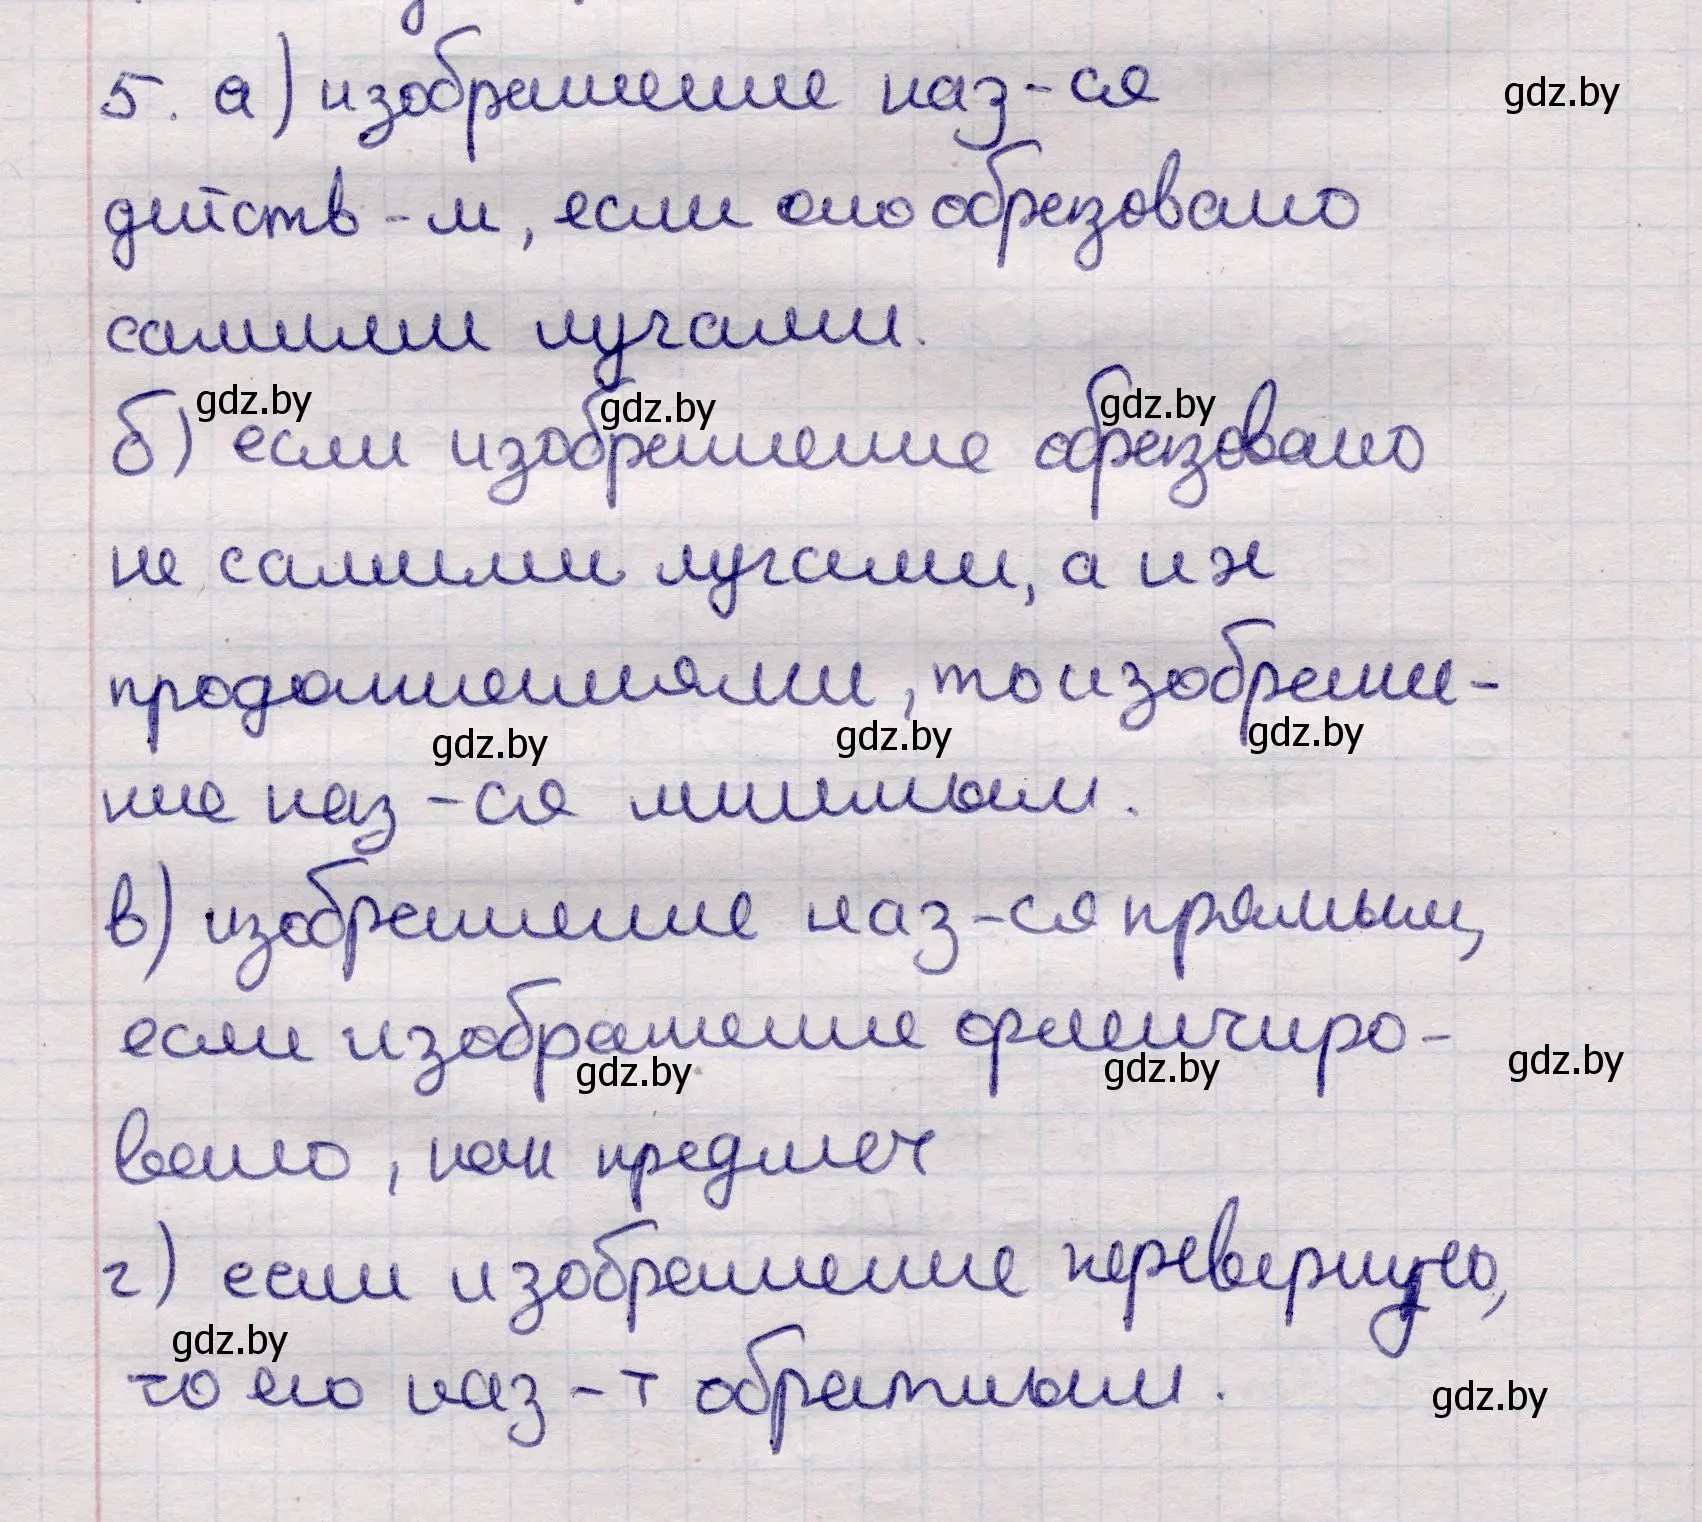 5. а) изображение наз-ся gdz.by
действ-м, если оно образовано
самими лучами.
gdz.by gdz.by gdz.by
б) если изображение образовано
не самими лучами, а их
продолжениями, то изображе-
gdz.by gdz.by gdz.by
ние наз-ся мнимым.
в) изображение наз-ся прямым,
если изображение ориентиро-
gdz.by gdz.by gdz.by
вано, как предмет
г) если изображение перевернуто,
gdz.by
то его наз-т обратным.
gdz.by